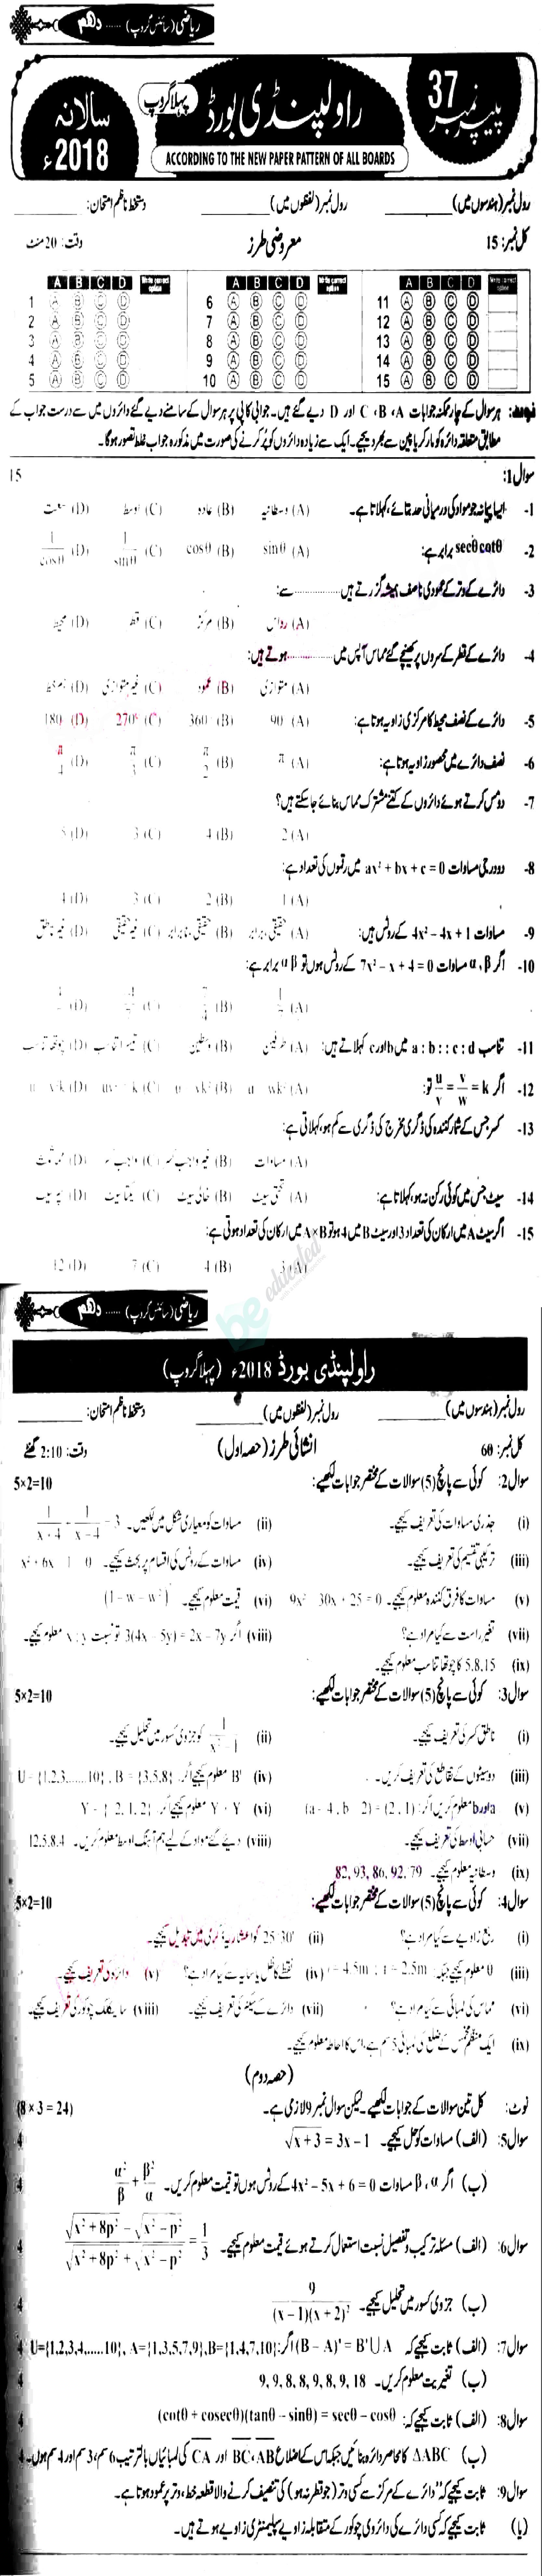 ریاضی (سائنس گروپ) ...... دہم
پیپر نمبر 37
راولپنڈی بورڈ
پہلا گروپ
سالانہ 2018ء
ACCORDING TO THE NEW PAPER PATTERN OF ALL BOARDS
رول نمبر (ہندسوں میں) ________ رول نمبر (لفظوں میں) ________ دستخط ناظم امتحان: ________
کل نمبر: 15 معروضی طرز وقت: 20 منٹ
A B C D Write correct option A B C D Write correct option A B C D Write correct option
1 A B C D 6 A B C D 11 A B C D
2 A B C D 7 A B C D 12 A B C D
3 A B C D 8 A B C D 13 A B C D
4 A B C D 9 A B C D 14 A B C D
5 A B C D 10 A B C D 15 A B C D
نوٹ: ہر سوال کے چار ممکنہ جوابات A، B، C اور D دیے گئے ہیں۔ جوابی کاپی پر ہر سوال کے سامنے دیے گئے دائروں میں سے درست جواب کے
مطابق متعلقہ دائرہ کو مارکر یا پین سے بھر دیجیے۔ ایک سے زیادہ دائروں کو پُر کرنے کی صورت میں مذکورہ جواب غلط تصور ہوگا۔
سوال 1: 15
1- ایسا پیمانہ جو مواد کی درمیانی حد بتائے، کہلاتا ہے۔ (A) وسطانیہ (B) عادہ (C) اوسط (D) سعت
2- secθ cotθ برابر ہے: (A) sinθ (B) cosθ (C) 1/sinθ (D) 1/cosθ
3- دائرے کے وتر کے عمودی ناصف ہمیشہ گزرتے ہیں ............ سے:
(A) رداس (B) مرکز (C) قطر (D) محیط
4- دائرے کے قطر کے سروں پر کھینچے گئے مماس آپس میں ............ ہوتے ہیں:
(A) متوازی (B) عمود (C) غیر متوازی (D) ہم خط
5- دائرے کے نصف محیط کا مرکزی زاویہ ہوتا ہے: (A) 90 (B) 360 (C) 270° (D) 180
6- نصف دائرے میں محصور زاویہ ہوتا ہے: (A) π (B) π/2 (C) π/3 (D) π/4
7- دو مس کرتے ہوئے دائروں کے کتنے مشترک مماس بنائے جا سکتے ہیں؟
(A) 2 (B) 4 (C) 3 (D) 5
8- دو درجی مساوات ax² + bx + c = 0 میں رقموں کی تعداد ہے:
(A) 1 (B) 2 (C) 3 (D) 4
9- مساوات 4x² − 4x + 1 کے روٹس ہیں: (A) حقیقی، برابر (B) حقیقی، نابرابر (C) غیر حقیقی (D) غیر ناطق
10- اگر α، β مساوات 7x² − x + 4 = 0 کے روٹس ہوں تو αβ برابر ہے:
11- تناسب a : b :: c : d میں b اور c کہلاتے ہیں: (A) طرفین (B) وسطین (C) تیسرا تناسب (D) چوتھا تناسب
12- اگر u/v = v/w = k تو:
13- کسر جس کے شمار کنندہ کی ڈگری مخرج کی ڈگری سے کم ہو، کہلاتی ہے:
(A) مساوات (B) غیر واجب کسر (C) واجب کسر
14- سیٹ جس میں کوئی رکن نہ ہو، کہلاتا ہے: (A) تحتی سیٹ (B) خالی سیٹ (C) یکتا سیٹ (D) پاور سیٹ
15- اگر سیٹ A میں ارکان کی تعداد 3 اور سیٹ B میں 4 ہو تو A×B میں ارکان کی تعداد ہوتی ہے:
(A) 3 (B) 4 (C) 7 (D) 12
be educated
ریاضی (سائنس گروپ) ...... دہم
راولپنڈی بورڈ 2018ء (پہلا گروپ)
رول نمبر (ہندسوں میں) ________ رول نمبر (لفظوں میں) ________ دستخط ناظم امتحان: ________
کل نمبر: 60 انشائی طرز (حصہ اول) وقت: 2:10 گھنٹے
سوال 2: کوئی سے پانچ (5) سوالات کے مختصر جوابات لکھیے: 5×2=10
(i) جذری مساوات کی تعریف کیجیے۔ (ii) مساوات کو معیاری شکل میں لکھیں۔ 1/(x+4) + 1/(x−4) = 3
(iii) ترکیبی تقسیم کی تعریف کیجیے۔ (iv) مساوات کے روٹس کی اقسام پر بحث کیجیے۔
(v) مساوات کا فرق کنندہ معلوم کیجیے۔ 9x² − 30x + 25 = 0 (vi) قیمت معلوم کیجیے۔
(vii) تغیر راست سے کیا مراد ہے؟ (viii) اگر 3(4x − 5y) = 2x − 7y تو نسبت x : y معلوم کیجیے۔
(ix) 5،8،15 کا چوتھا تناسب معلوم کیجیے۔
سوال 3: کوئی سے پانچ (5) سوالات کے مختصر جوابات لکھیے: 5×2=10
(i) ناطق کسر کی تعریف کیجیے۔ (ii) 1/(x²−1) کو جزوی کسور میں تحلیل کیجیے۔
(iii) دو سیٹوں کے تقاطع کی تعریف کریں۔ (iv) B' معلوم کیجیے اگر U = {1,2,3,......10}, B = {3,5,8}
(v) a اور b معلوم کریں اگر: (a − 4, b − 2) = (2, 1) (vi) Y × Y معلوم کیجیے اگر Y = {−2, 1, 2}
(vii) حسابی اوسط کی تعریف کیجیے۔ (viii) دیے گئے مواد کے لیے ہم آہنگ اوسط معلوم کریں۔ 12،5،8،4
(ix) وسطانیہ معلوم کیجیے۔ 82, 93, 86, 92, 79
سوال 4: کوئی سے پانچ (5) سوالات کے مختصر جوابات لکھیے: 5×2=10
(i) ربع زاویے سے کیا مراد ہے؟ (ii) 25°30' کو اعشاریہ ڈگری میں تبدیل کیجیے۔
(iii) θ معلوم کیجیے جبکہ: l = 4.5m ; r = 2.5m (iv) نقطے کا ظل یا سایہ سے کیا مراد ہے؟ (v) دائرہ کی تعریف کیجیے۔
(vi) مماس کی لمبائی سے کیا مراد ہے؟ (vii) دائرے کے سیکٹر کی تعریف کیجیے۔ (viii) سائیکلک چوکور کی تعریف کیجیے۔
(ix) ایک منظم مخمس کے ضلع کی لمبائی 5 سم ہے، اس کا احاطہ معلوم کیجیے۔
(حصہ دوم)
نوٹ: کل تین سوالات کے جوابات لکھیے۔ لیکن سوال نمبر 9 لازمی ہے۔ (8 × 3 = 24)
سوال 5: (الف) مساوات کو حل کیجیے۔ √(x+3) = 3x − 1 4
(ب) اگر α، β مساوات 4x² − 5x + 6 = 0 کے روٹس ہوں تو قیمت معلوم کریں۔ α²/β + β²/α 4
سوال 6: (الف) مسئلہ ترکیب و تفصیل نسبت استعمال کرتے ہوئے قیمت معلوم کیجیے۔ (√(x²+8p²) − √(x²−p²)) / (√(x²+8p²) + √(x²−p²)) = 1/3 4
(ب) جزوی کسور میں تحلیل کیجیے۔ 9/((x−1)(x+2)²) 4
سوال 7: (الف) ثابت کیجیے کہ (B − A)' = B' ∪ A اگر: U={1,2,3,4,.....10}, A={1,3,5,7,9}, B={1,4,7,10} 4
(ب) تغیریت معلوم کریں۔ 9, 9, 8, 8, 9, 8, 9, 18 4
سوال 8: (الف) ثابت کیجیے کہ: (cotθ + cosecθ)(tanθ − sinθ) = secθ − cosθ 4
(ب) ΔABC کا محاصر دائرہ بنائیں جبکہ اس کے اضلاع AB، BC اور CA کی لمبائیاں بالترتیب 6 سم، 3 سم اور 4 سم ہوں۔ 4
سوال 9: ثابت کیجیے کہ "دائرے کے مرکز سے کسی وتر (جو قطر نہ ہو) کی تنصیف کرنے والا قطعہ خط، وتر پر عمود ہوتا ہے۔
(یا) ثابت کیجیے کہ کسی دائرے کی دائروی چوکور کے متقابلہ زاویے سپلیمنٹری زاویے ہوتے ہیں۔